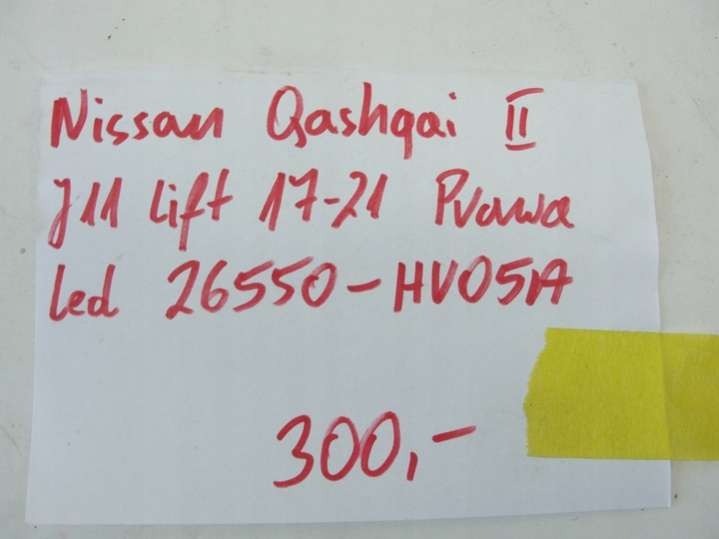 Nissan Qashqai II
J11 Lift 17-21 Prawa
led 26550-HV05A
300,-